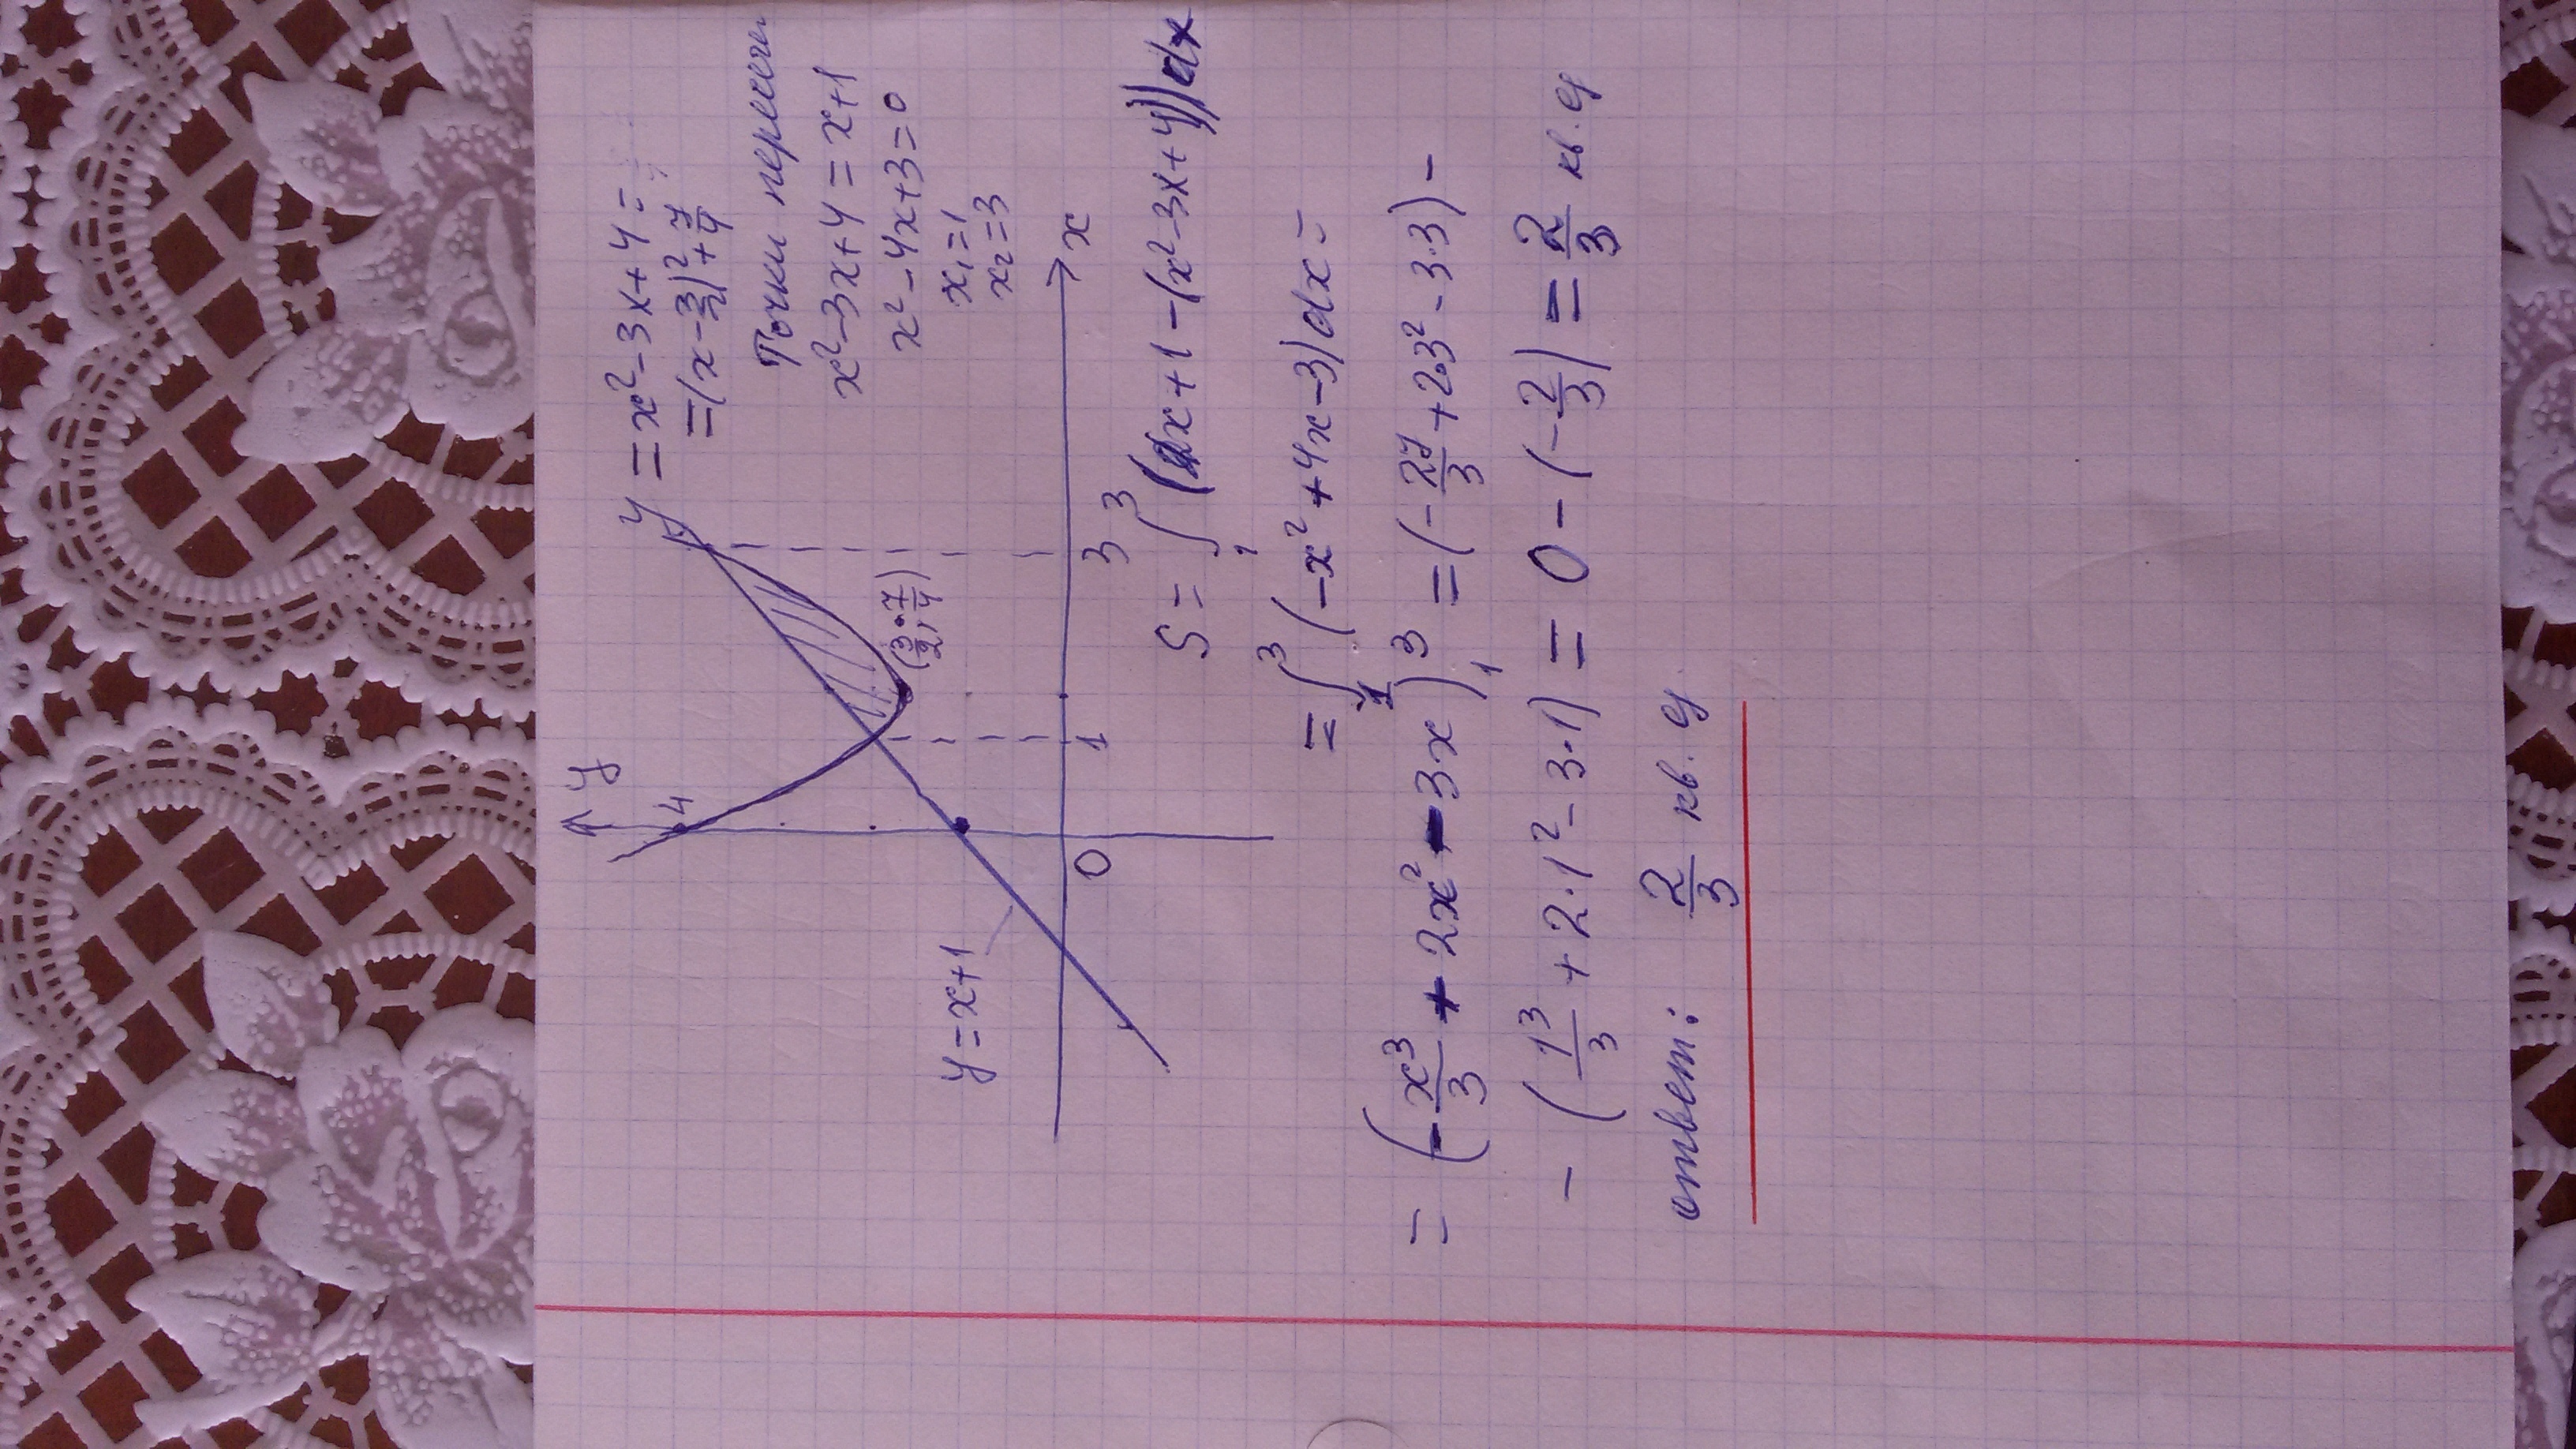 y
4
y = x² - 3x + 4 =
= (x - 3/2)² + 7/4
Точки пересеч.
x² - 3x + 4 = x + 1
x² - 4x + 3 = 0
x₁ = 1
x₂ = 3
y = x + 1
(3/2; 7/4)
0 1 3 x
S = ∫₁³ (x + 1 - (x² - 3x + 4)) dx
= ∫₁³ (-x² + 4x - 3) dx =
= (-x³/3 + 2x² - 3x)₁³ = (-27/3 + 2·3² - 3·3) -
- (1³/3 + 2·1² - 3·1) = 0 - (-2/3) = 2/3 кв. ед
ответ: 2/3 кв. ед.